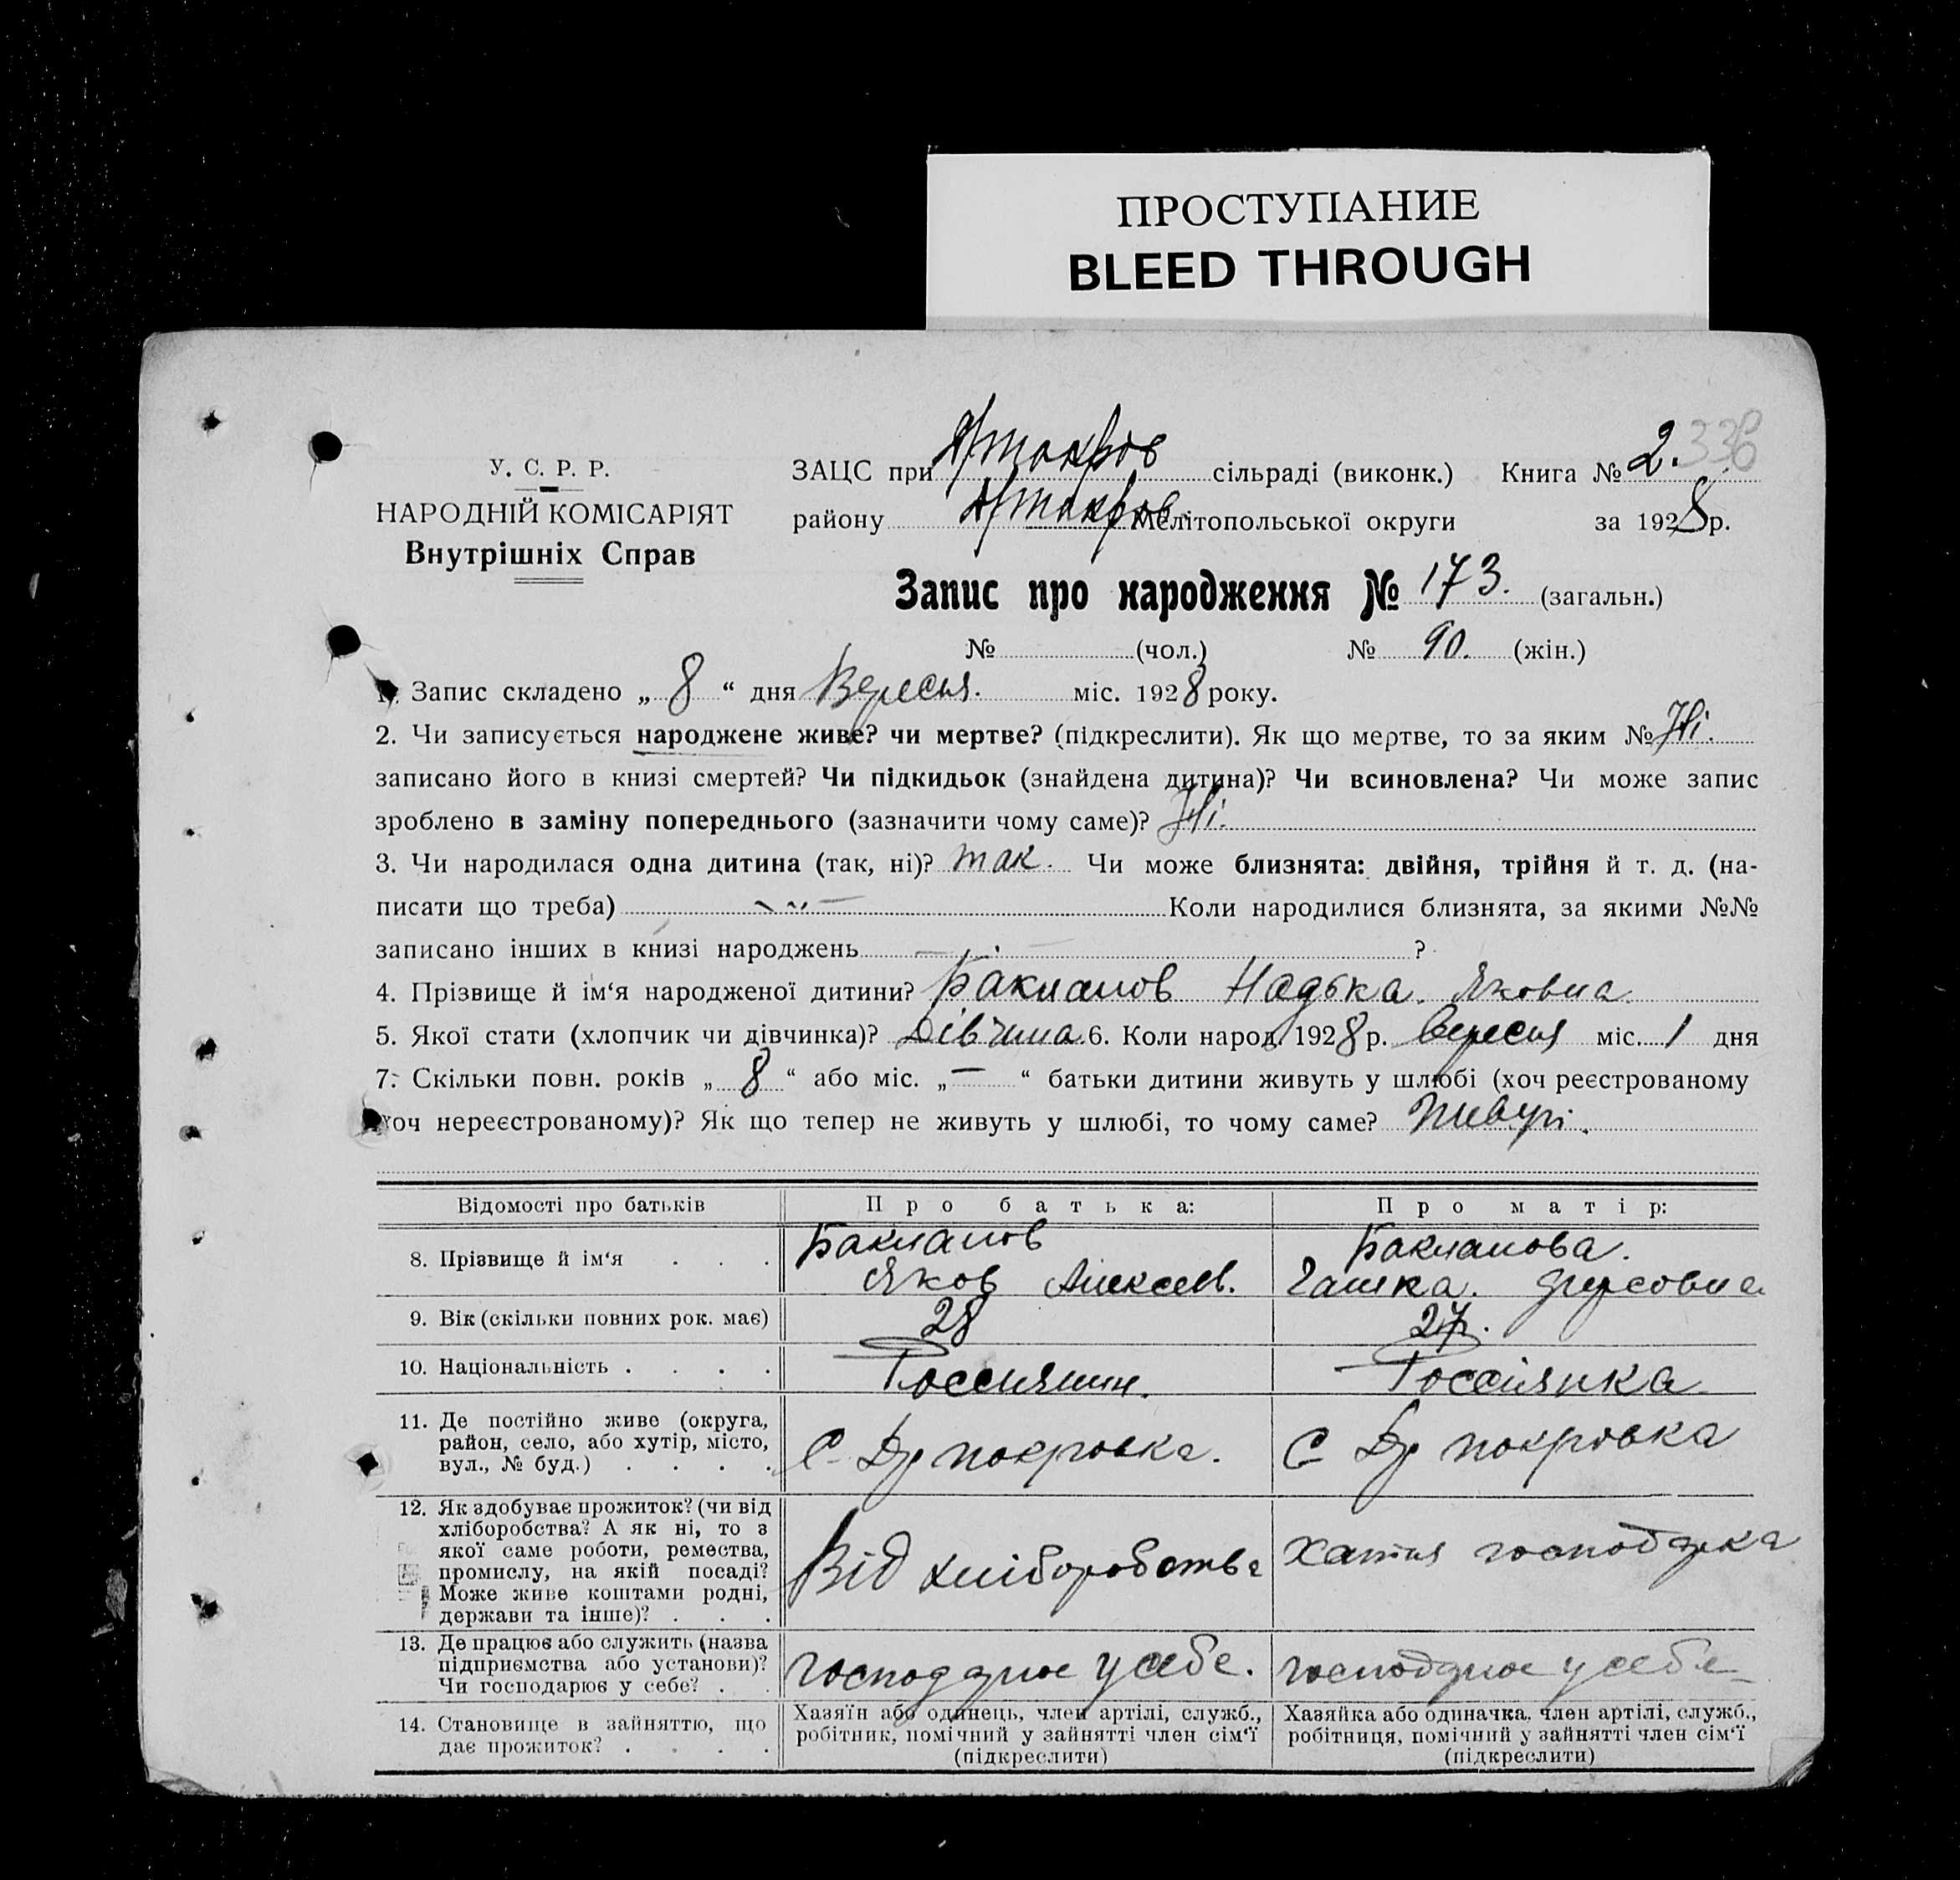 ПРОСТУПАНИЕ
BLEED THROUGH
336
У. С. Р. Р.
НАРОДНІЙ КОМІСАРІЯТ
Внутрішніх Справ
ЗАЦС при сільраді (виконк.) Книга № 2.
району Мелітопольської округи за 1928 р.
Запис про народження № 173. (загальн.)
№ (чол.) № 90. (жін.)
1. Запис складено „ 8 “ дня Вересня. міс. 1928 року.
2. Чи записується народжене живе? чи мертве? (підкреслити). Як що мертве, то за яким № Ні.
записано його в книзі смертей? Чи підкидьок (знайдена дитина)? Чи всиновлена? Чи може запис
зроблено в заміну попереднього (зазначити чому саме)? Ні.
3. Чи народилася одна дитина (так, ні)? так. Чи може близнята: двійня, трійня й т. д. (на-
писати що треба) Коли народилися близнята, за якими №№
записано інших в книзі народжень ?
4. Прізвище й ім‘я народженої дитини? Бакланов Надька. Яковна.
5. Якої стати (хлопчик чи дівчинка)? Дівчина 6. Коли народ. 1928 р. Вересня міс. 1 дня
7. Скільки повн. років „ 8 “ або міс. „ — “ батьки дитини живуть у шлюбі (хоч реєстрованому
хоч нереєстрованому)? Як що тепер не живуть у шлюбі, то чому саме?
Відомості про батьків Про батька: Про матір:
8. Прізвище й ім‘я . . . Бакланов Яков Алексеев. Бакланова. Гашка.
9. Вік (скільки повних рок. має) 28 27.
10. Національність . . . . Россиянин. Россіянка
11. Де постійно живе (округа,
район, село, або хутір, місто,
вул., № буд.) . . . . С. Др покровка. С Др покровка
12. Як здобуває прожиток? (чи від
хліборобства? А як ні, то з
якої саме роботи, ремества,
промислу, на якій посаді?
Може живе коштами родні,
держави та інше)? . . . Від хліборобства Хатня господарка
13. Де працює або служить (назва
підприємства або установи)?
Чи господарює у себе? . . господарює у себе. господарює у себе
14. Становище в зайняттю, що
дає прожиток? . . . .
Хазяїн або одинець, член артілі, служб.,
робітник, помічний у зайнятті член сім‘ї
(підкреслити)
Хазяйка або одиначка, член артілі, служб.,
робітниця, помічний у зайнятті член сім‘ї
(підкреслити)